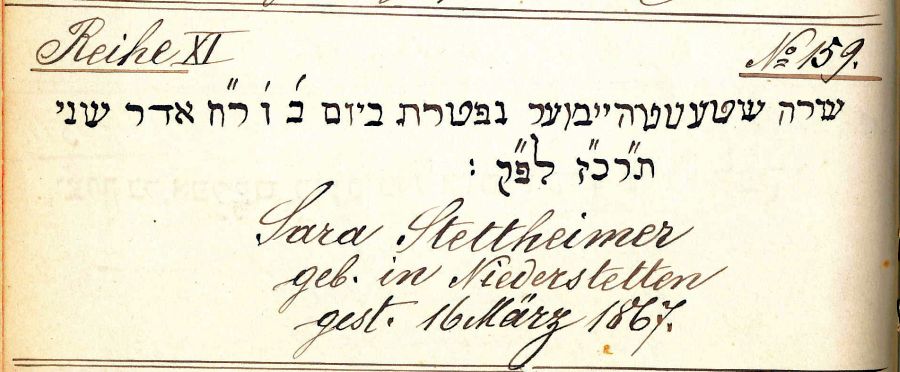 Reihe XI
No 159.
שרה שטעטטהיימער נפטרת ביום ב' ו' ר"ח אדר שני
ת"רכ"ז לפ"ק :
Sara Stettheimer
geb. in Niederstetten
gest. 16 März 1867.